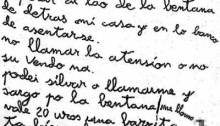 al lao de la bentana
de detras mi casa y en lo banco
de asentarse.
no llamar la atension o no
su vendo na.
podei silvar o llamarme y
salgo po la bentana/me llamo
vale 20 uros puna barrita